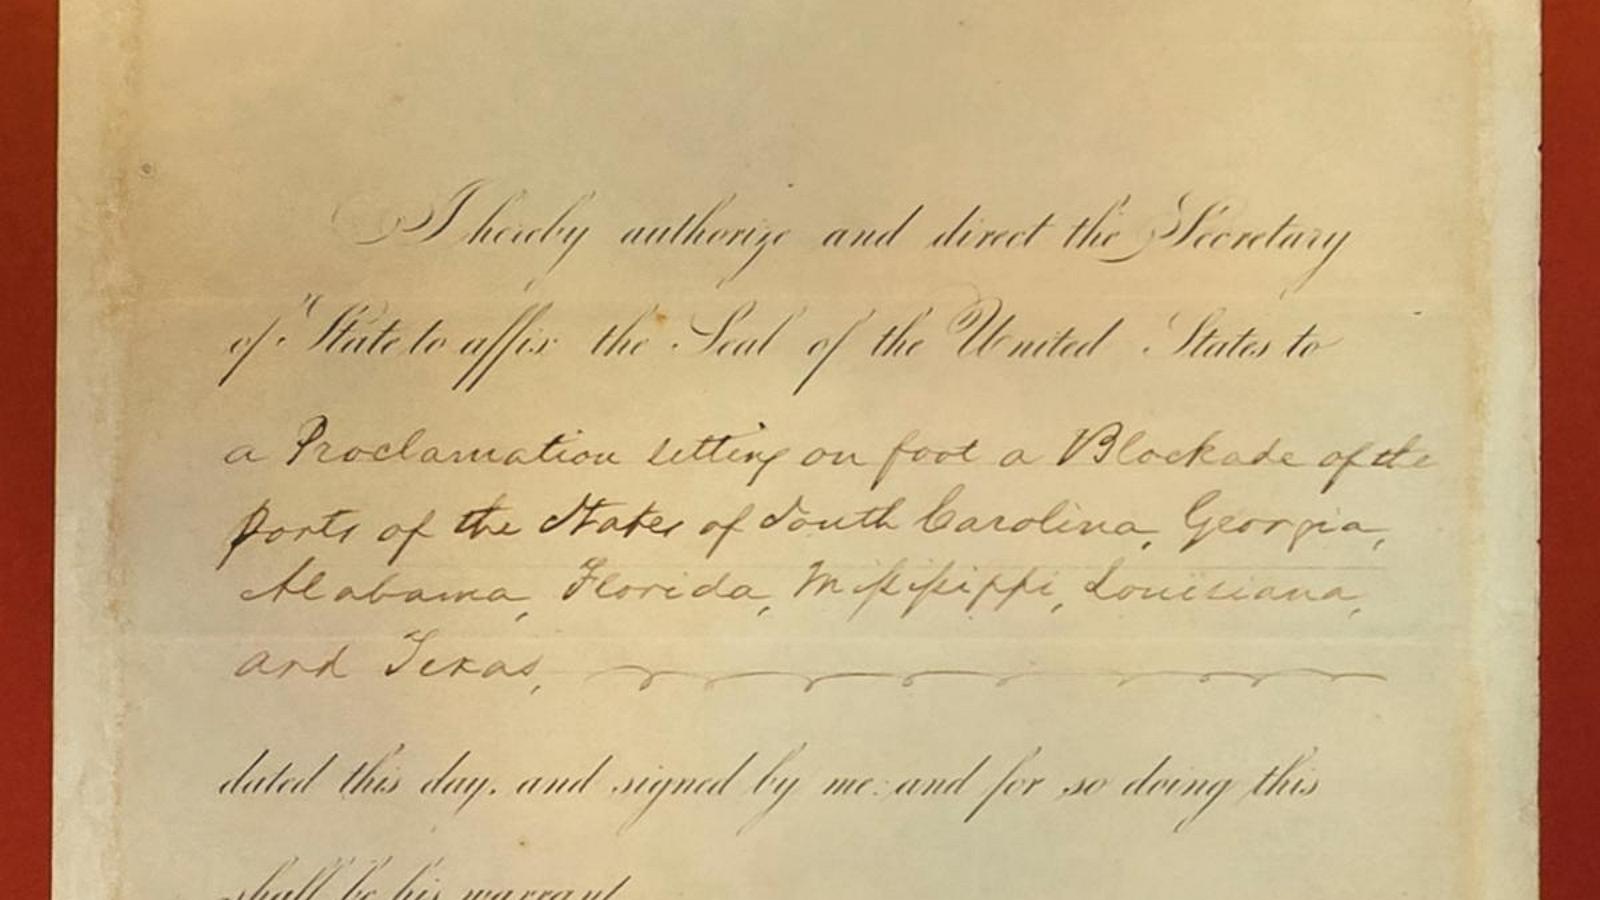 I hereby authorize and direct the Secretary
of State to affix the Seal of the United States to
a Proclamation setting on foot a Blockade of the
ports of the States of South Carolina, Georgia,
Alabama, Florida, Mississippi, Louisiana,
and Texas,
dated this day, and signed by me: and for so doing this
shall be his warrant